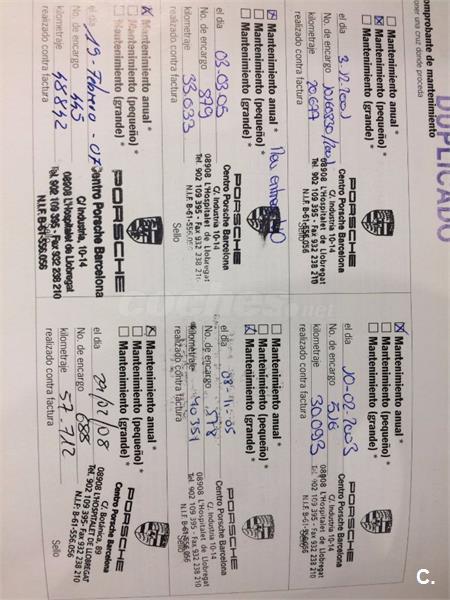 Comprobante de mantenimiento
DUPLICADO
Mantenimiento anual *
Mantenimiento (pequeño) *
Mantenimiento (grande) *
el día 3-12-2001
No. de encargo
kilometraje 20.697
realizado contra factura
PORSCHE
Centro Porsche Barcelona
C/ Industria 10-14
08908 L'Hospitalet de Llobregat
Tel. 902 109 395 - Fax 932 238 210
N.I.F. B-61-556.056
Mantenimiento anual *
Mantenimiento (pequeño) *
Mantenimiento (grande) *
el día 10-02-2003
No. de encargo 516
kilometraje 30.093
realizado contra factura
PORSCHE
Centro Porsche Barcelona
C/ Industria 10-14
08908 L'Hospitalet de Llobregat
Tel. 902 109 395 - Fax 932 238 210
N.I.F. B-61-556.056
Mantenimiento anual *
Mantenimiento (pequeño) *
Mantenimiento (grande) *
el día 03.03.05
No. de encargo 879
kilometraje 33.633
realizado contra factura
PORSCHE
Centro Porsche Barcelona
C/ Industria 10-14
08908 L'Hospitalet de Llobregat
Tel. 902 109 395 - Fax 932 238 210
N.I.F. B-61-556.056
Sello
Mantenimiento anual *
Mantenimiento (pequeño) *
Mantenimiento (grande) *
el día 08-11-05
No. de encargo 578
kilometraje 40351
realizado contra factura
PORSCHE
Centro Porsche Barcelona
C/ Industria 10-14
08908 L'Hospitalet de Llobregat
Tel. 902 109 395 - Fax 932 238 210
N.I.F. B-61-556.056
Sello
Mantenimiento anual *
Mantenimiento (pequeño) *
Mantenimiento (grande) *
el día 19-Febrero-07
No. de encargo 445
kilometraje 48842
realizado contra factura
PORSCHE
Centro Porsche Barcelona
C/ Industria, 10-14
08908 L'Hospitalet de Llobregat
Tel. 902 109 395 - Fax 932 238 210
N.I.F. B-61-556.056
Sello
Mantenimiento anual *
Mantenimiento (pequeño) *
Mantenimiento (grande) *
el día 29/02/08
No. de encargo 688
kilometraje 57.712
realizado contra factura
PORSCHE
Centro Porsche Barcelona
C/ Botánica, 89
08908 L'HOSPITALET DE LLOBREGAT
Tel. 902 109 395 - Fax 932 238 210
N.I.F. B-61-556.056
Sello
C.